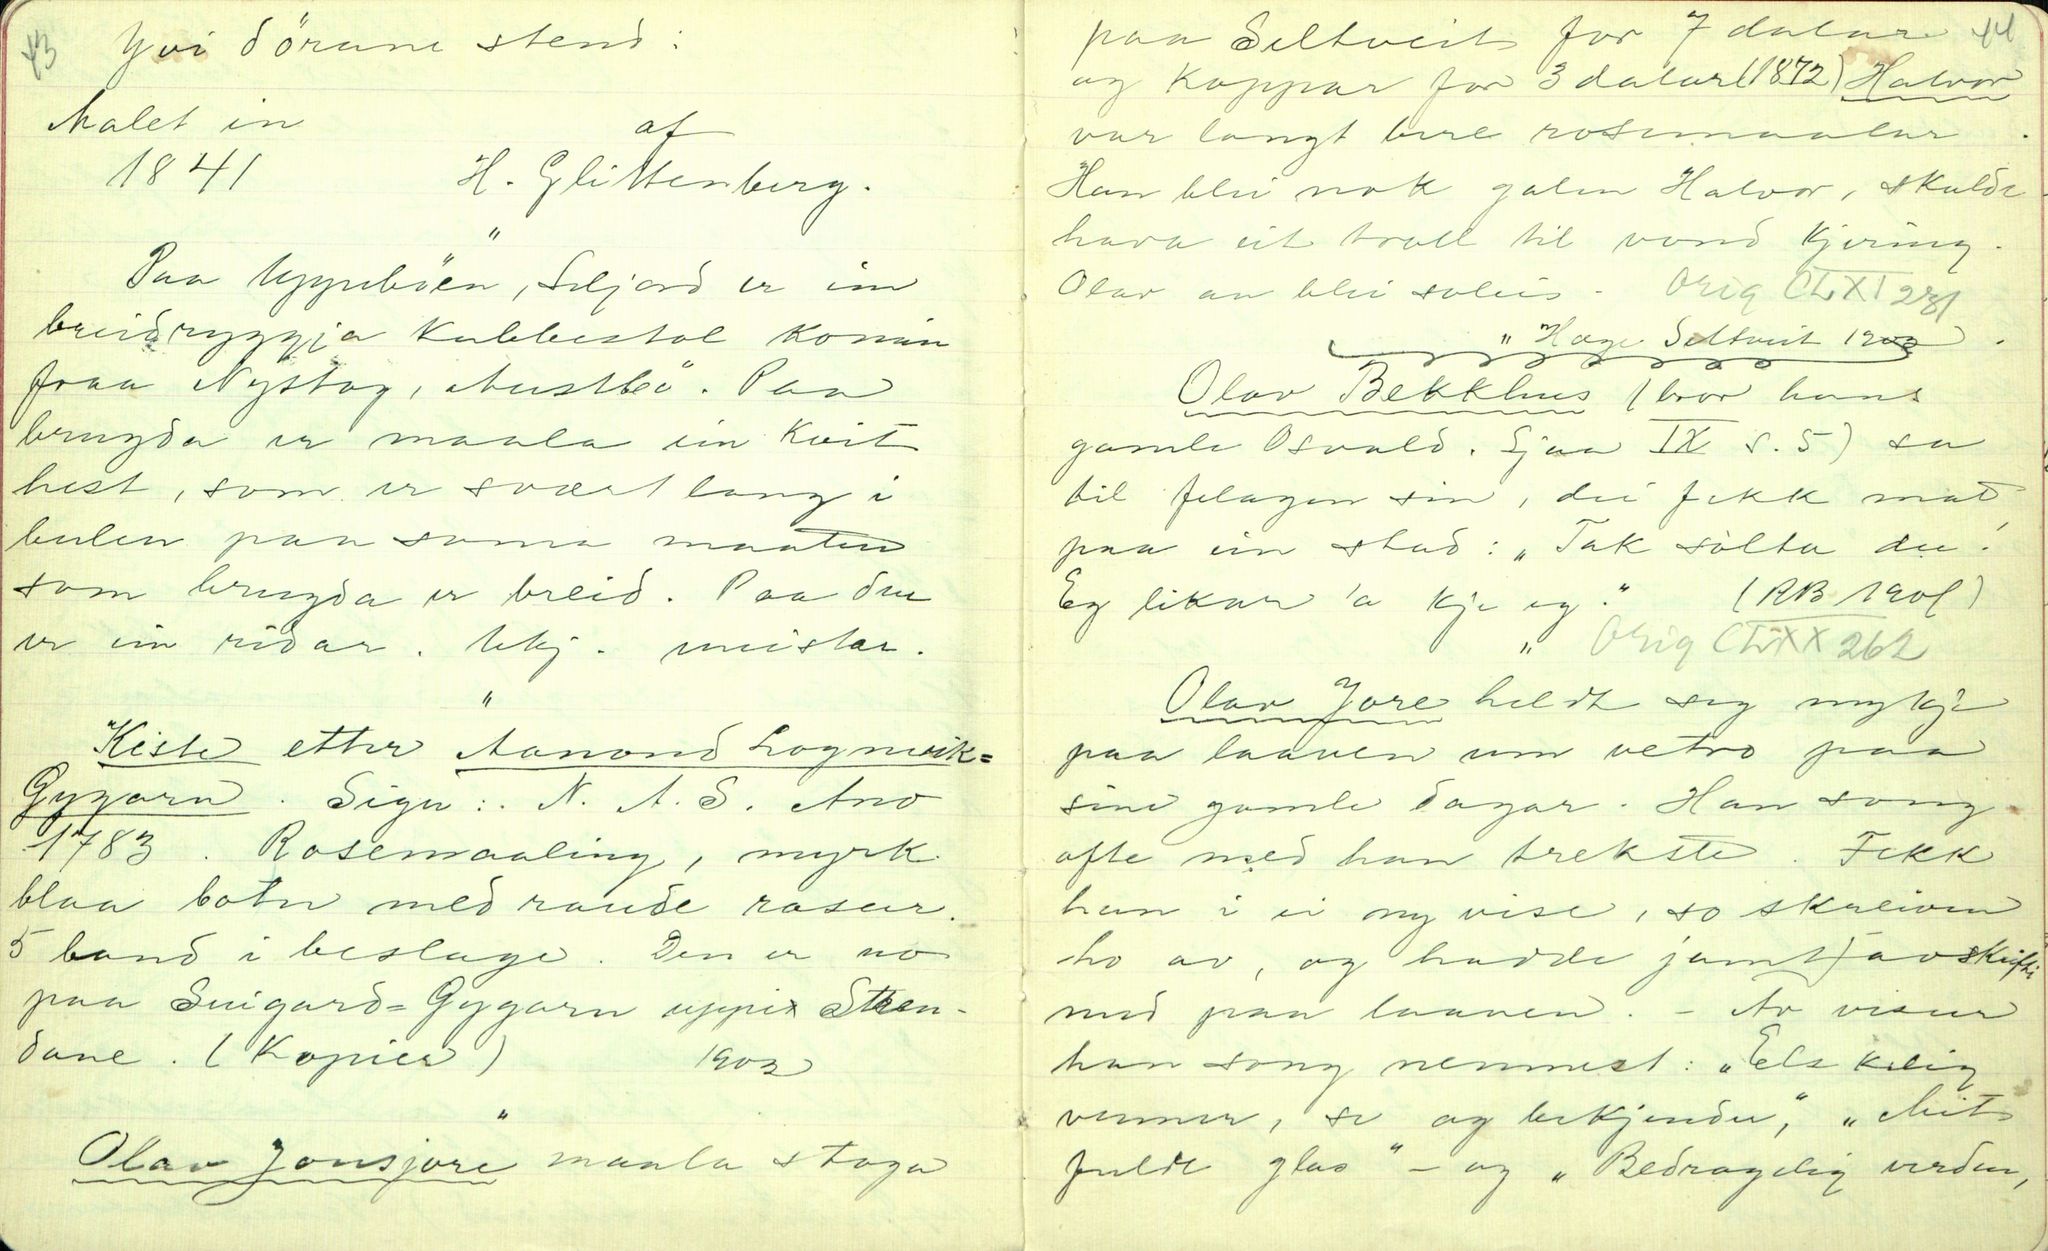 43
Yvi dörane stend:
Malet in
af
1841 H. Glittenberg.
"
Paa Uppeböen, Seljord er ein
breidryggja Kubbestol komin
fraa Nystog, Austbö. Paa
brugda er maala ein kvit
hest, som er svært lang i
bulen paa sama maaten
som brugda er breid. Paa den
er ein ridar. Ukj. meistar.
"
Kiste etter Aanond Lognvik=
Gygarn. Sign:. N. A. S. Ano
1783. Rosemaaling, myrk
blaa botn med raude rosur.
5 band i beslage. Den er no
paa Snigard=Gygarn uppi Stren-
dane. (Kopier) 1903
"
Olav Jonsjore maala stoga
44
paa Seltveit for 7 dalar
og Koppar for 3 dalar (1872) Halvor
var langt bere rosemaalar.
Han blei nok galen Halvor, skulde
hava eit troll til vond kjering.
Olav an blei soleis. Orig CLXI 281
" Høge Seltveit 1903.
Olav Bekkhus (bror hans
gamle Osvald. Sjaa IX s. 5) sa
til felagen sin, dei fekk mat
paa ein stad: "Tak sölta du!
Eg likar 'a kje eg." (RB 1901)
" Orig CLXX 262
Olav Jore heldt seg mykje
paa laaven um vetro paa
sine gamle dagar. Han song
ofte med han trekste. Fekk
han i ei ny vise, so skreiven
ho av, og hadde jamt avskrifti
med paa laaven. - Av visur
han song nemmest: "Elskelig
venner, se og bekjender," "Mit
fulde glas" - og "Bedragelig verden,